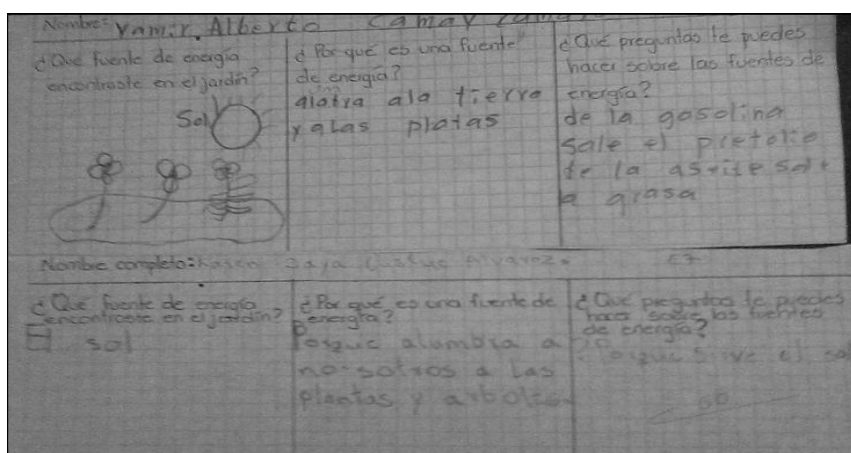 Nombre: Yamir. Alberto Camay
¿Qué fuente de energía
encontraste en el jardín?
Sol
¿Por qué es una fuente
de energía?
alatra ala tierra
y alas platas
¿Qué preguntas te puedes
hacer sobre las fuentes de
energía?
de la gasolina
sale el pretolio
de la aseite sale
la grasa
Nombre completo: Alvarez.
¿Qué fuente de energía
encontraste en el jardín?
El sol
¿Por qué es una fuente de
energía?
Porque alumbra a
nosotros a las
plantas y arboles
¿Qué preguntas te puedes
hacer sobre las fuentes
de energía?
Porque sirve el sol